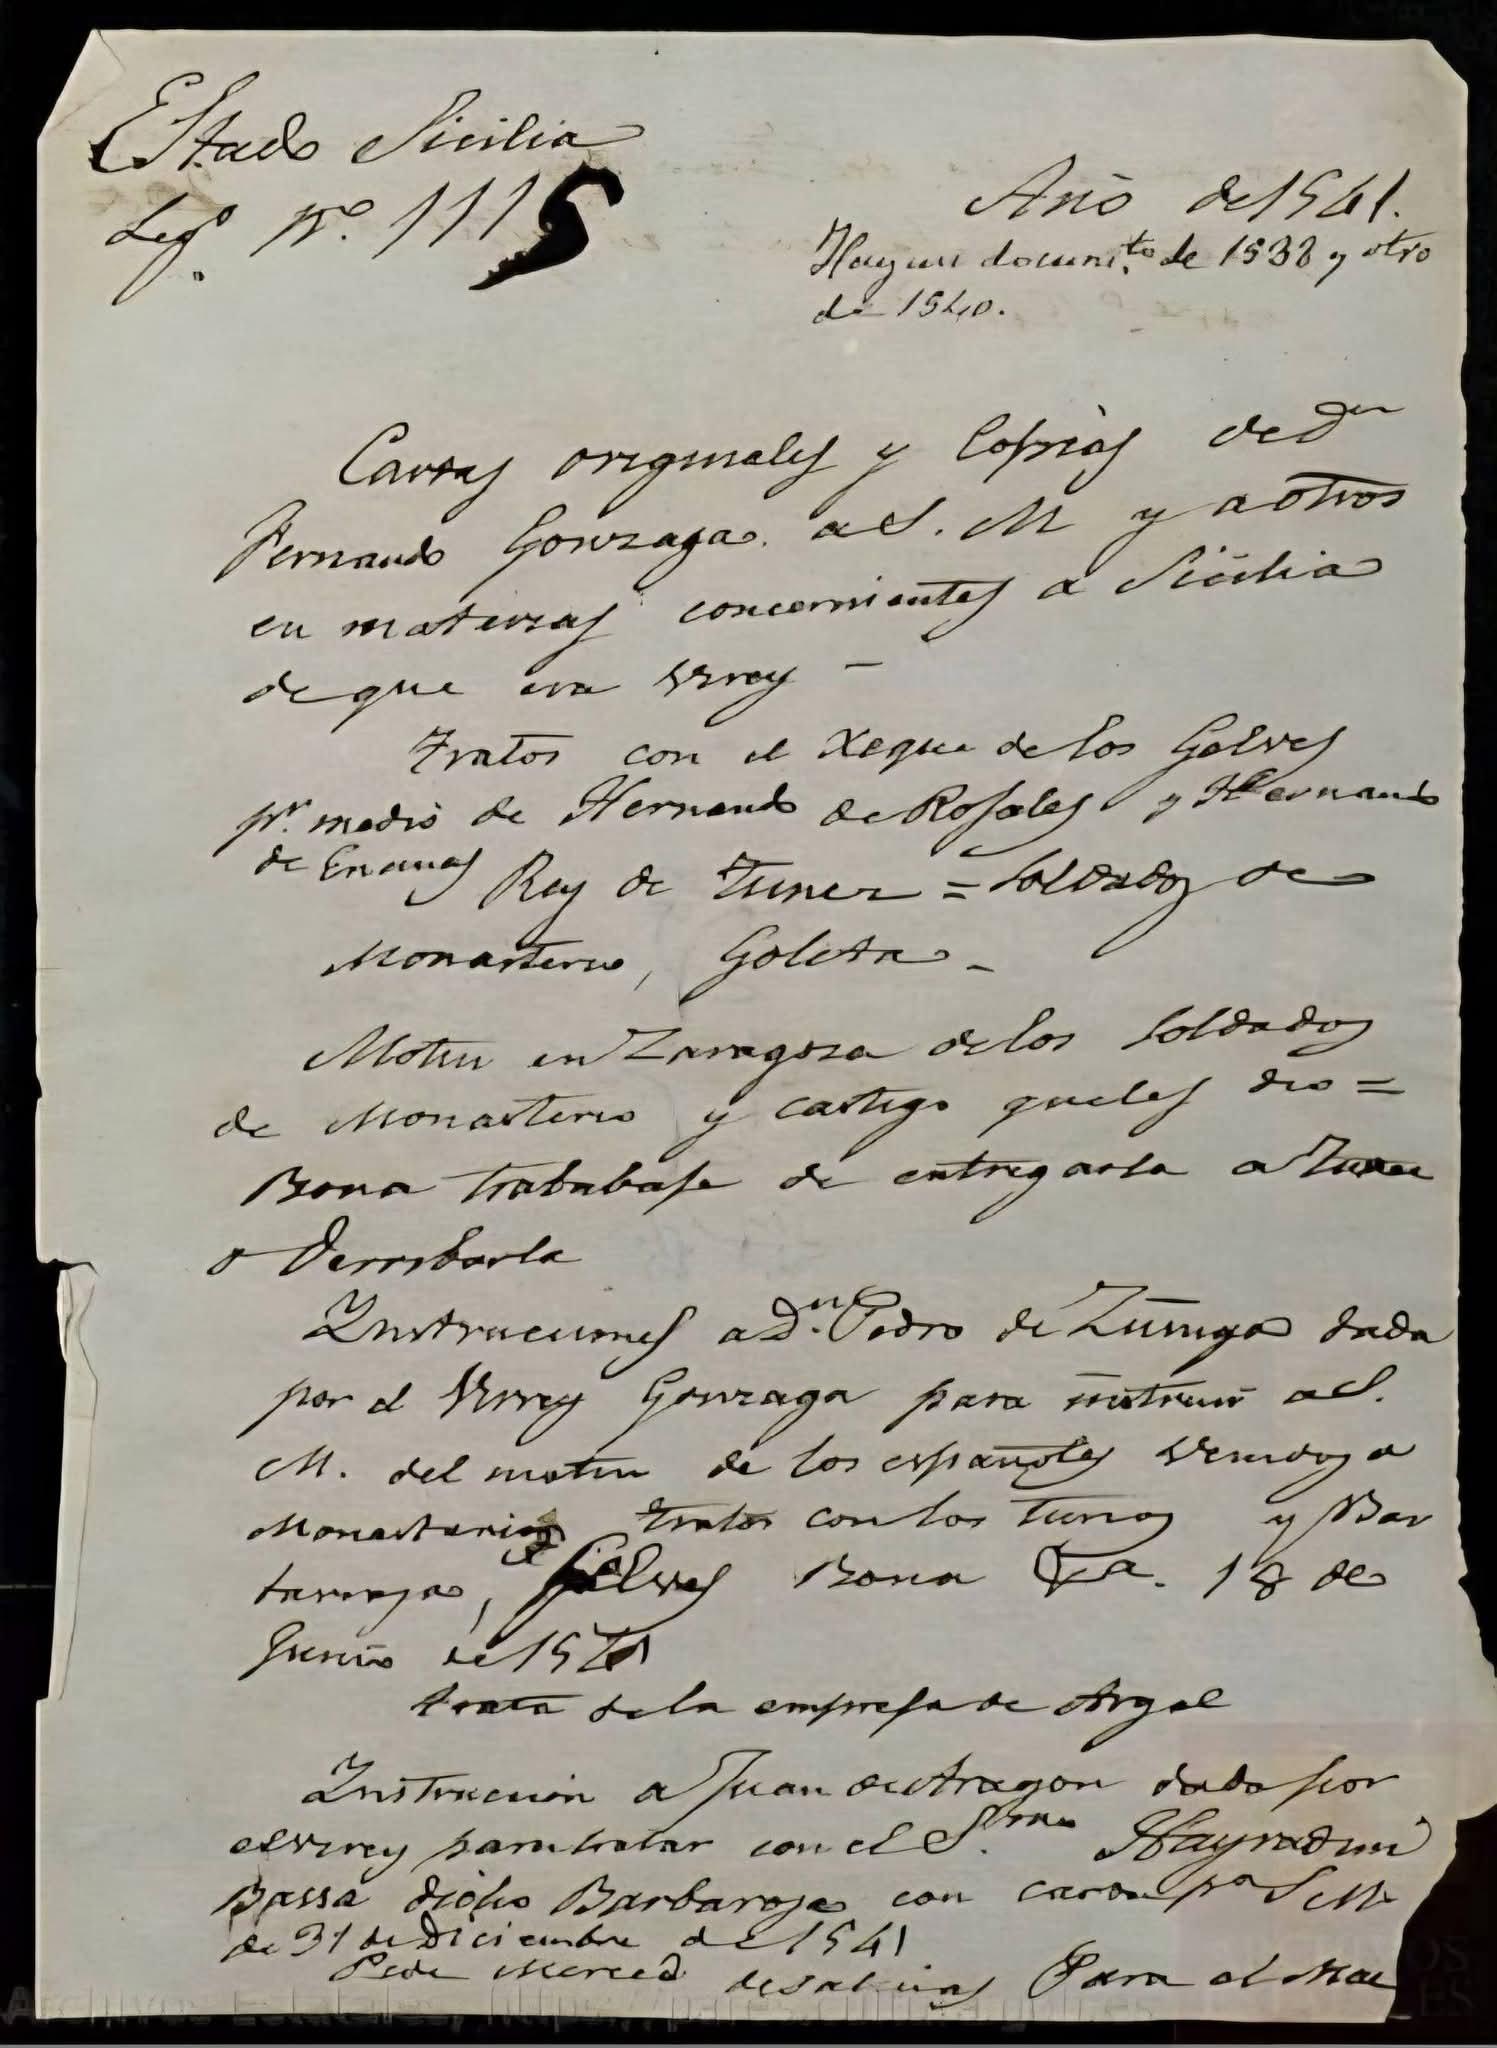 Estado Sicilia
Legº. Nº. 1115
Año de 1541.
Hay un docum.to de 1538 y otro
de 1540.
Cartas originales y copias de Dn
Fernando Gonzaga a S. M y a otros
en materias concernientes a Sicilia
de que era Virrey —
Tratos con el Xeque de los Gelves
pr. medio de Hernando de Rosales y Hernando
de
Rey de Tunez = Soldados de
Monasterio, Goleta -
Motin en Zaragoza de los soldados
de Monasterio y castigo que les dio =
Bona tratabase de entregarla a Tunez
o Derribarla
Instrucciones a Dn. Pedro de Zuñiga dada
por el Virrey Gonzaga para instruir a S.
M. del motin de los españoles venidos a
Monasterio tratos con los turcos y Bar
barroja, Gelves Bona &a. 18 de
Junio de 1541
trata de la empresa de Argel
Instruccion a Juan de Aragon dada por
el virrey para tratar con el
Bassa dicho Barbaroja con carta pa S M.
de 31 de Diciembre de 1541
Pide Merced de salinas Para el Mar
Archivos Estatales, https